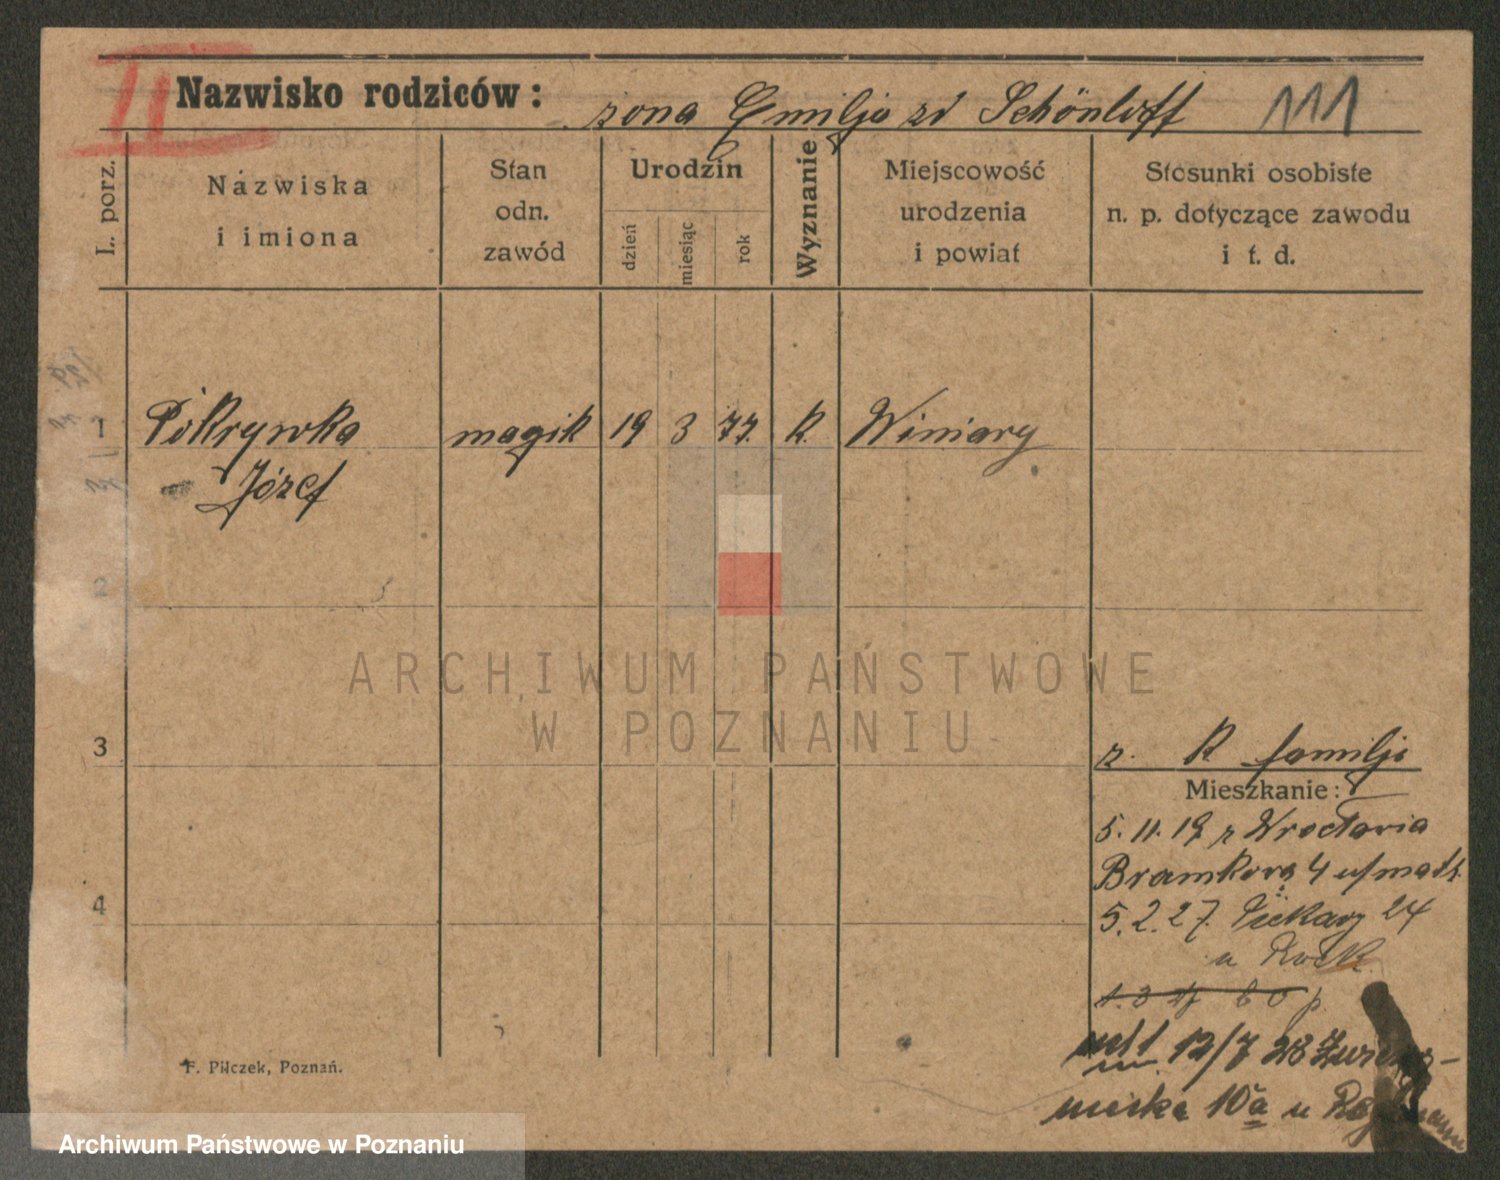 II
Nazwisko rodziców:
żona Emilja zd Schönloff 111
L. porz.
Nazwiska
i imiona
Stan
odn.
zawód
Urodzin
dzień
miesiąc
rok
Wyznanie
Miejscowość
urodzenia
i powiat
Stosunki osobiste
n. p. dotyczące zawodu
i t. d.
1 Pokrywka magik 19 3 77. k. Winiary
Józef
2
ARCHIWUM PAŃSTWOWE
W POZNANIU
3
z. k familja
Mieszkanie:
5. 11. 19 z Wrocławia
Bramkowa 4
4
5. 2. 27. Piekary 24
u
12/7 28
10a u
F. Piłczek, Poznań.
Archiwum Państwowe w Poznaniu